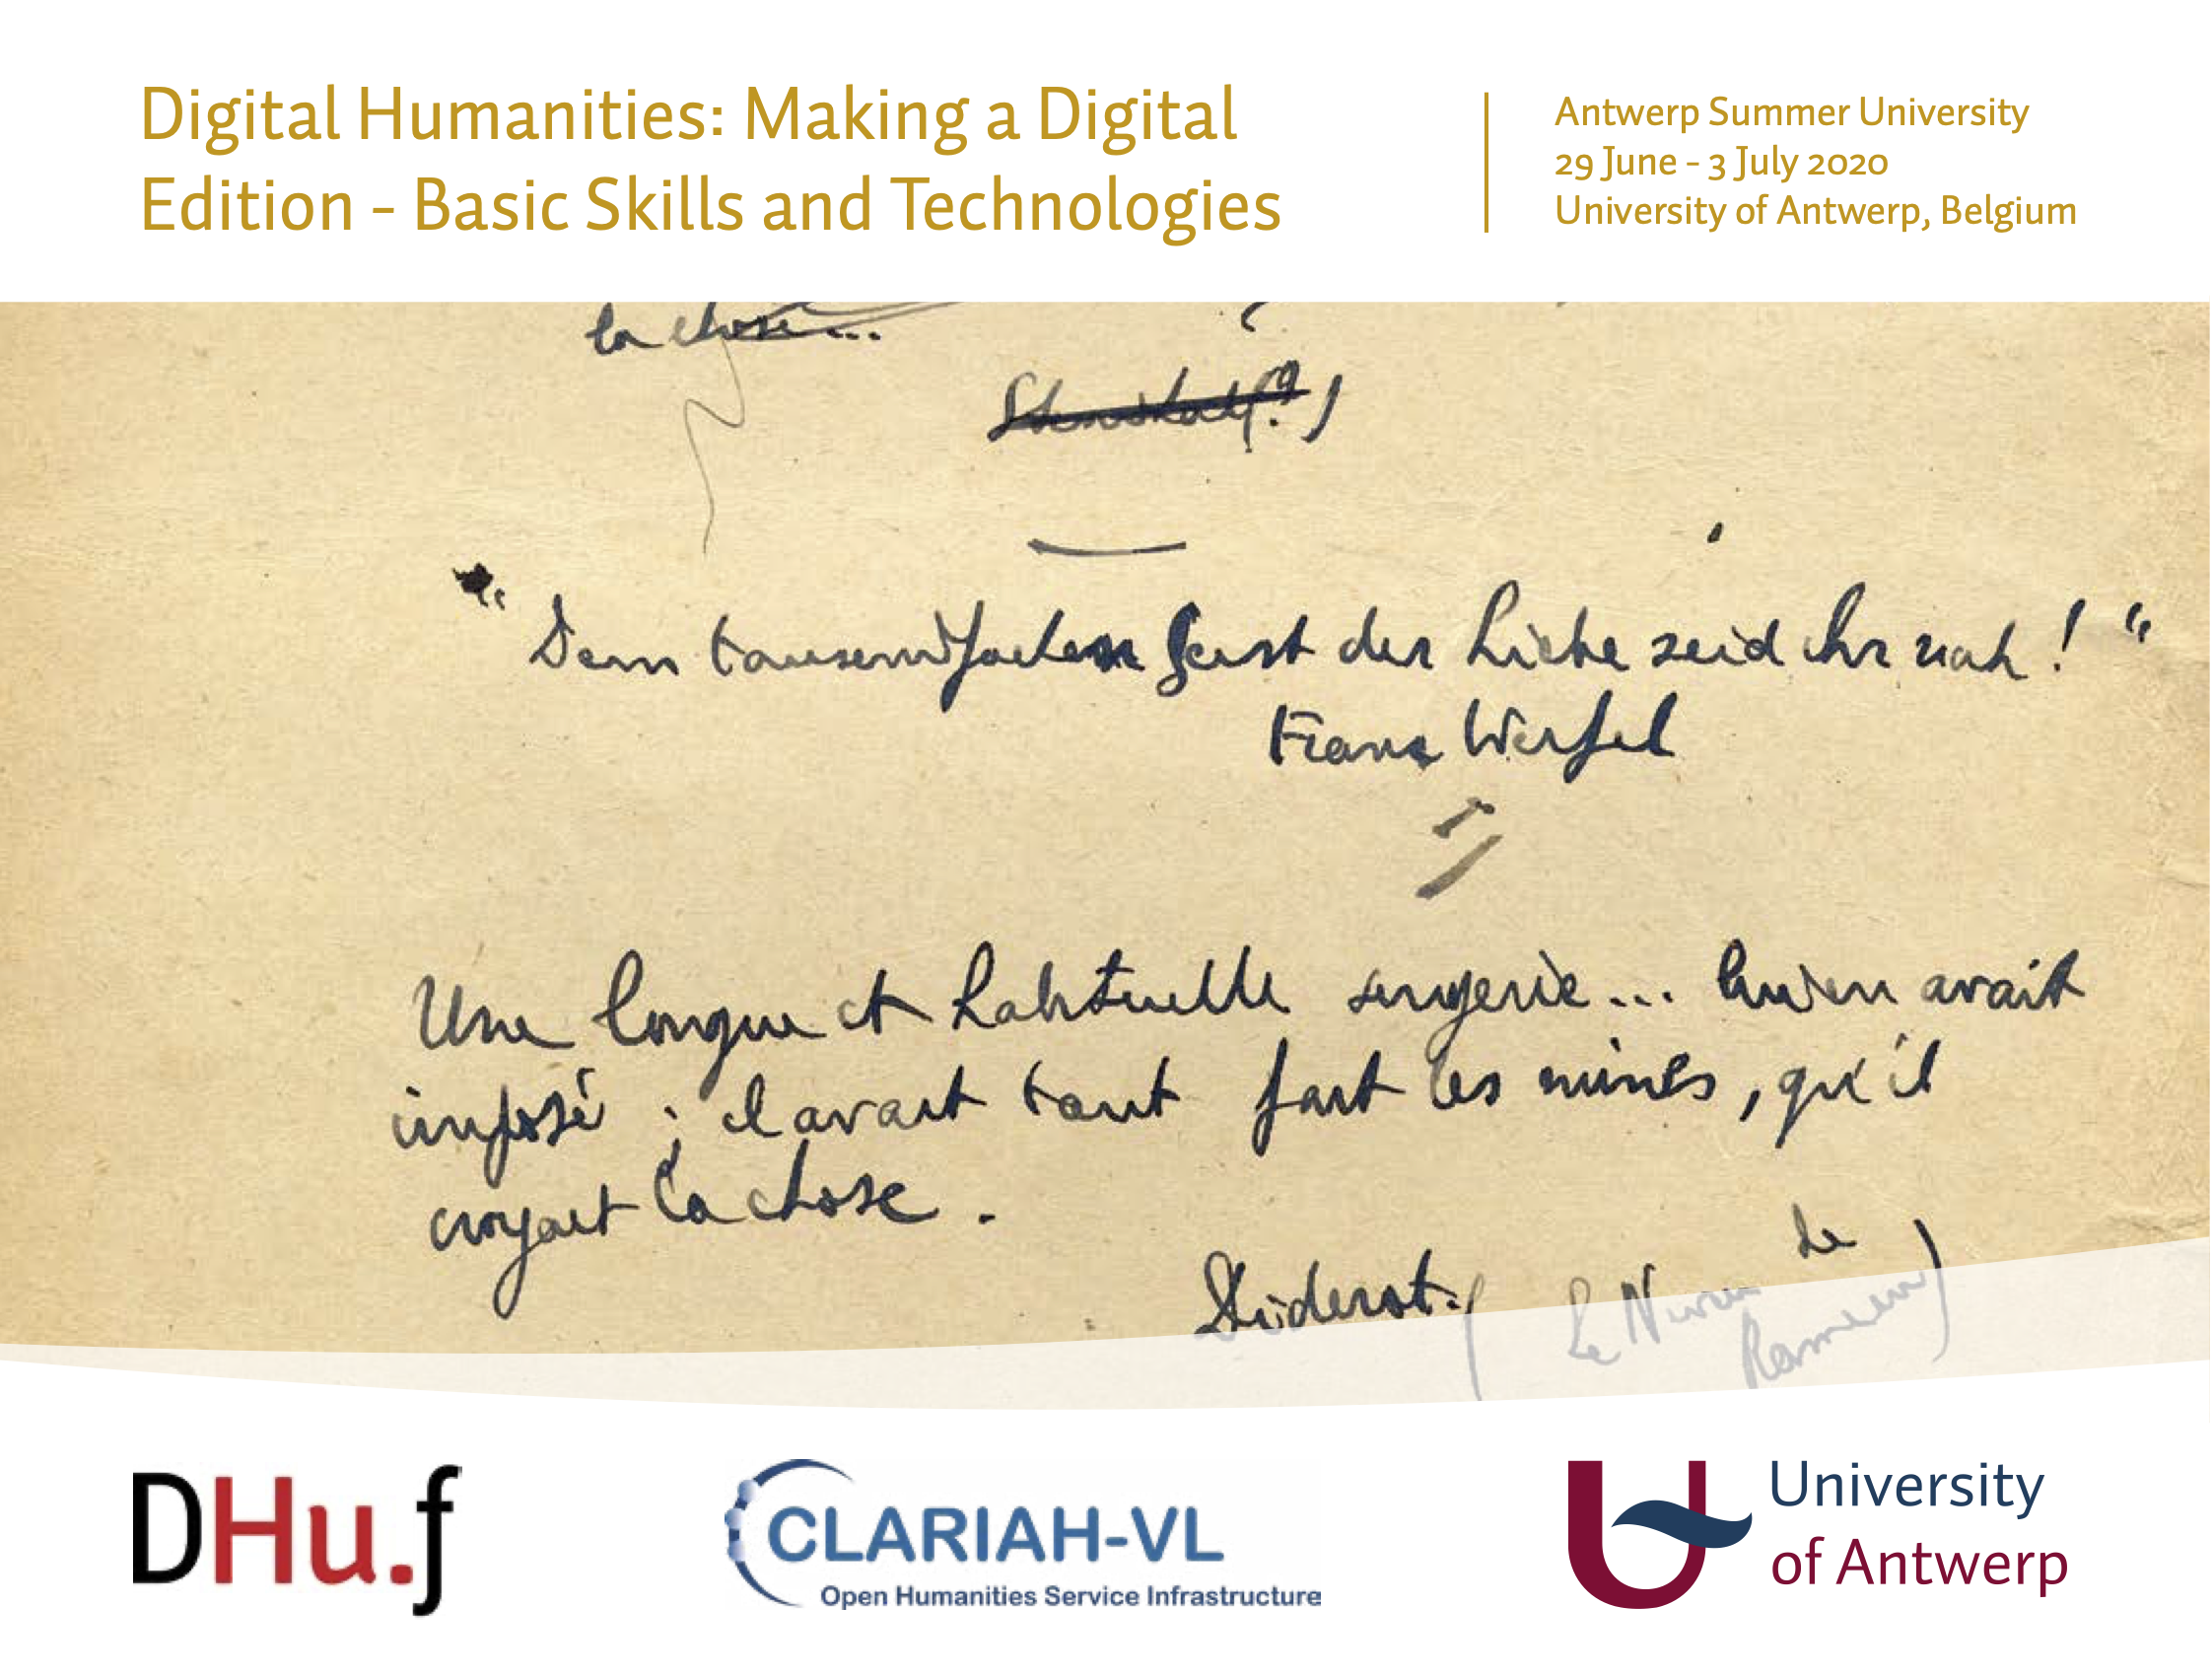 Digital Humanities: Making a Digital
Edition - Basic Skills and Technologies
Antwerp Summer University
29 June - 3 July 2020
University of Antwerp, Belgium
la chose...
"Dem tausendfachen Geist der Liebe seid ihr nah!"
Franz Werfel
Une longue et habituelle singerie... lui en avait
imposé ; il avait tant fait les mines, qu'il
croyait la chose.
Diderot. (Le Neveu de
Rameau)
DHu.f
CLARIAH-VL
Open Humanities Service Infrastructure
University
of Antwerp